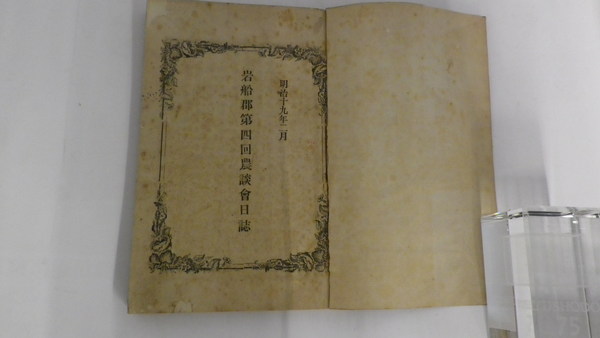 明治十九年二月
岩船郡第四回農談會日誌